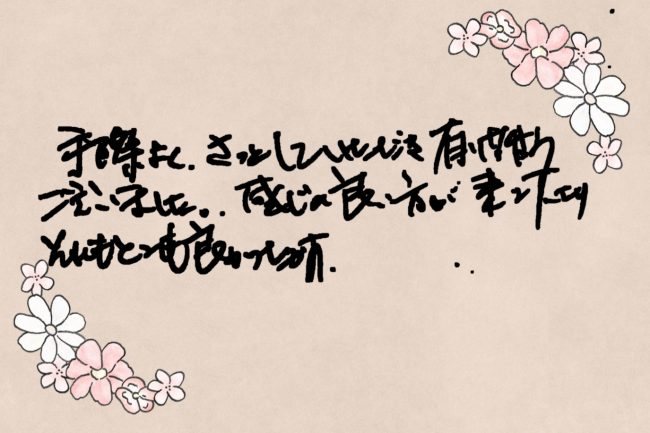 手際よく、さっとしていただき有り難う
ございました。感じの良い方が来て下さり
とてもとても良かったです。